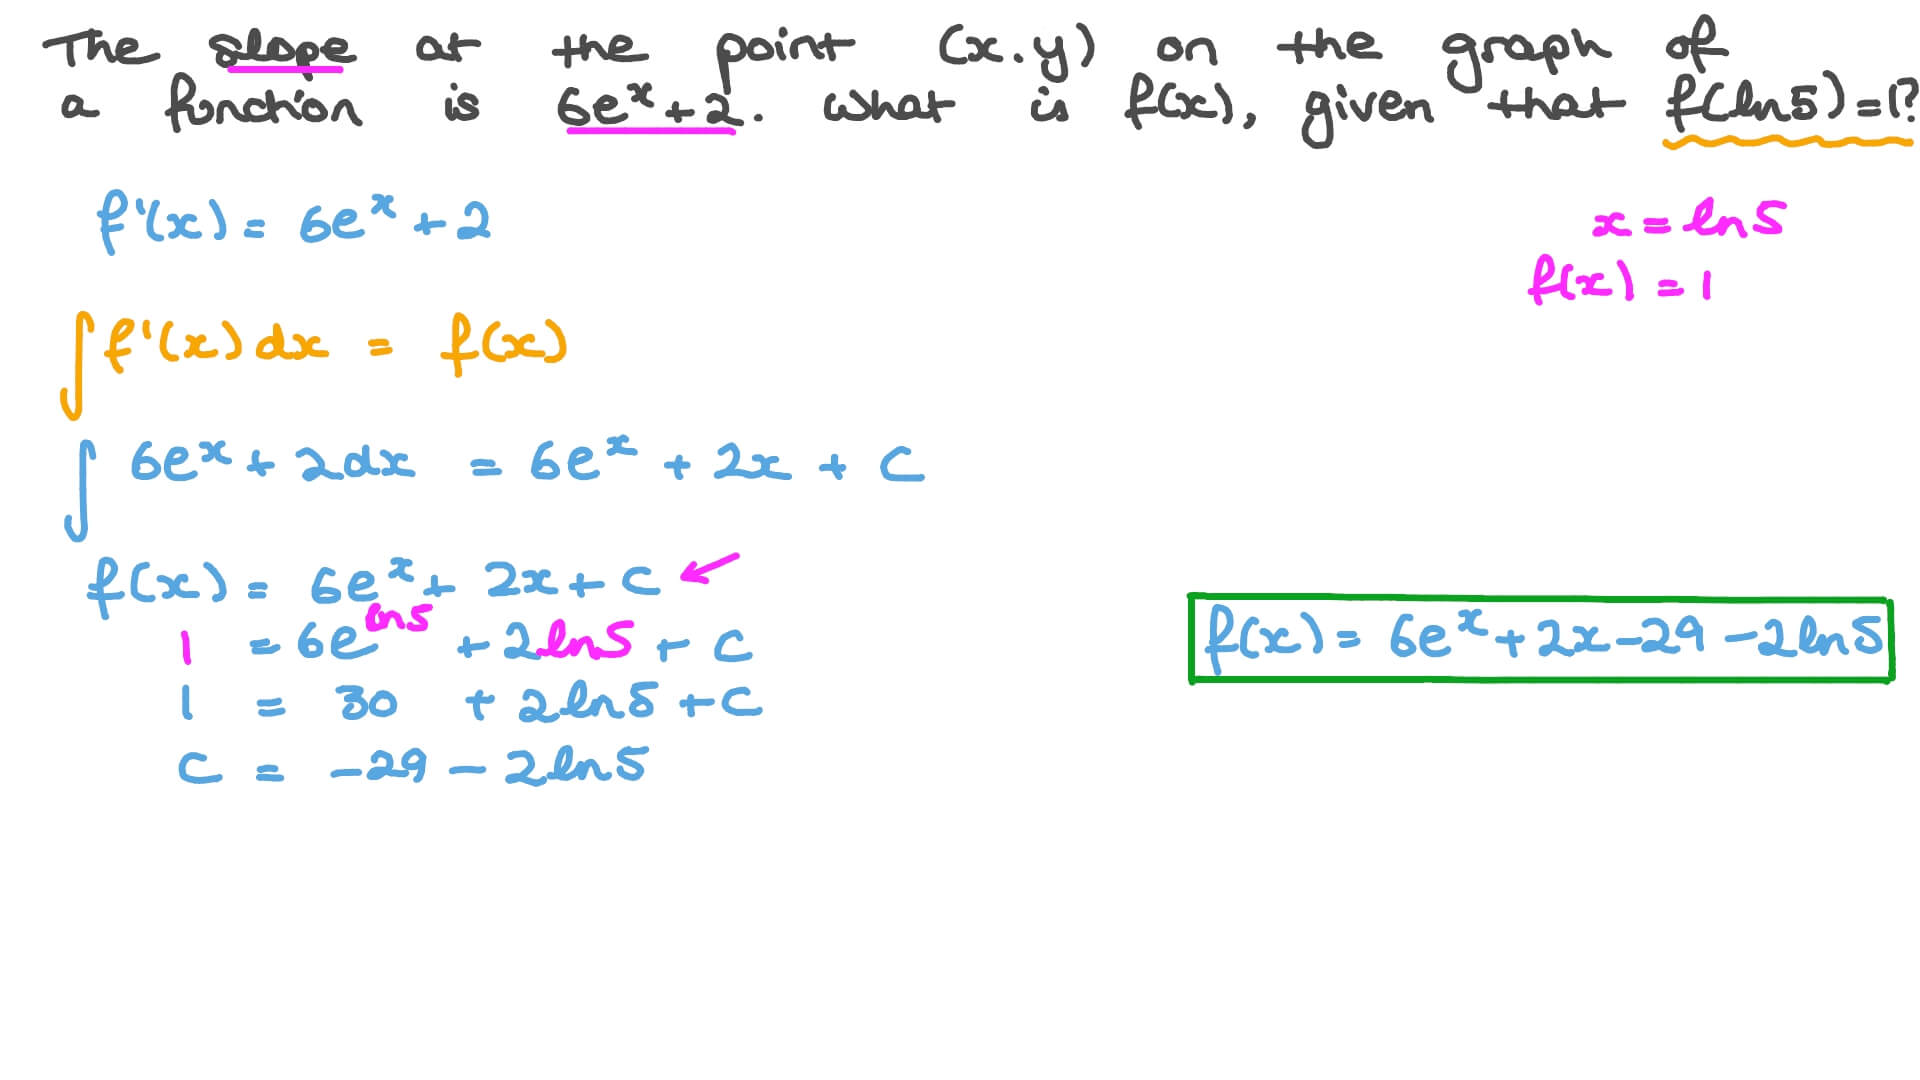 The slope at the point (x.y) on the graph of
a function is 6eˣ+2. What is f(x), given that f(ln5)=1?
f'(x) = 6eˣ + 2
x = ln5
f(x) = 1
∫ f'(x) dx = f(x)
∫ 6eˣ + 2dx = 6eˣ + 2x + C
f(x) = 6eˣ + 2x + C
1 = 6e^ln5 + 2ln5 + C
1 = 30 + 2ln5 + C
C = -29 - 2ln5
f(x) = 6eˣ + 2x - 29 - 2ln5